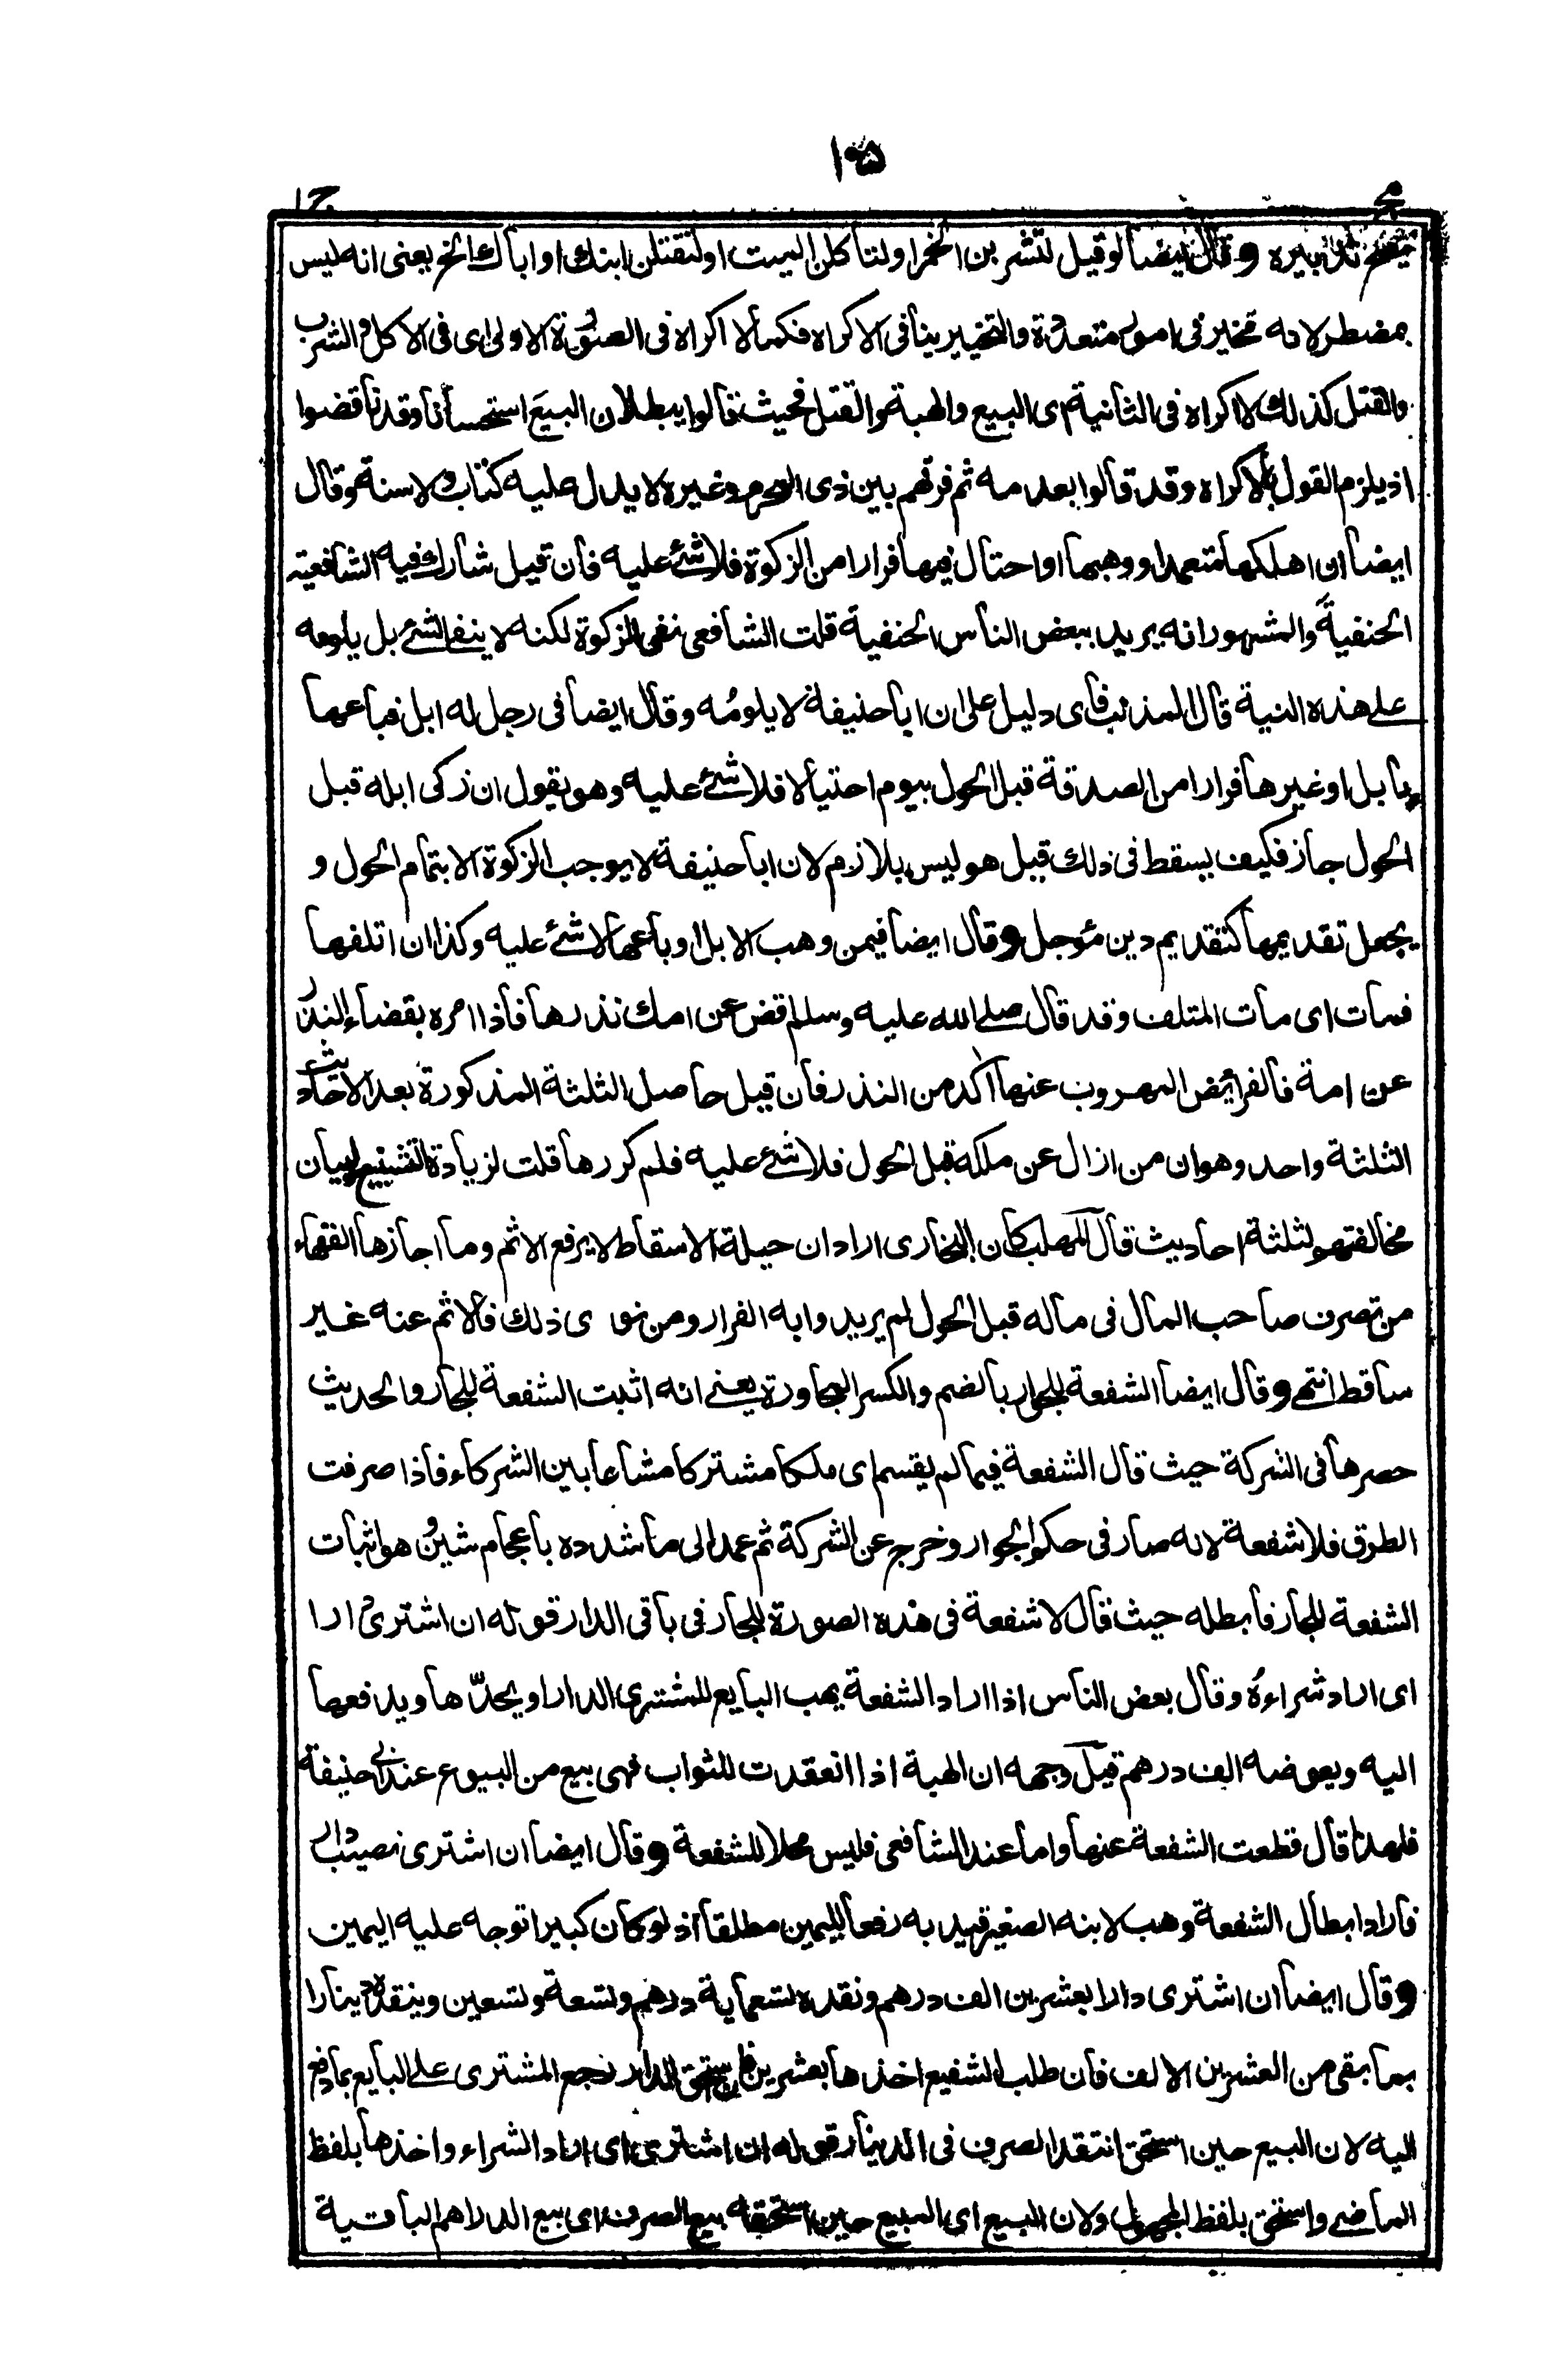 ١٩٥
ج ١
يصح تدابيره وقال ايضا لو قيل لتشربن الخمر او لتاكلن الميت او لتقتلن ابنك او اباك الخ يعنى انه ليس
بمضطر لانه تخاير فى امور متعددة والتخيير ينافى الاكراه فكما لا اكراه فى الصورة الاولى اى فى الاكل والشرب
والقتل كذلك لا اكراه فى الثانية اى البيع والهبة والقتل فحيث قالوا ببطلان البيع استحسانا وقد ناقضوا
اذ يلزم القول بالاكراه وقد قالوا بعدمه ثم فرقهم بين ذى الرحم وغيره لا يدل عليه كتاب ولا سنة وقال
ايضا ان اهلكها متعمدا او وهبها او احتال فيها فرارا من الزكوة فلا شئ عليه فان قيل شارك فيه الشافعية
الحنفية والمشهور انه يريد ببعض الناس الحنفية قلت الشافعى نفى الزكوة لكنه لا ينفى الشئ بل يلومه
على هذه النية قال المذنب فاى دليل على ان ابا حنيفة لا يلومه وقال ايضا فى رجل له ابل فباعها
بابل او غيرها فرارا من الصدقة قبل الحول بيوم احتيالا فلا شئ عليه وهو يقول ان زكى ابله قبل
الحول جاز فكيف يسقط فى ذلك قيل هو ليس بلازم لان ابا حنيفة لا يوجب الزكوة الا بتمام الحول و
يجعل تقديمها كتقديم دين مؤجل وقال ايضا فيمن وهب الابل او باعها لا شئ عليه وكذا ان اتلفها
فمات اى مات المتلف وقد قال صلى الله عليه وسلم اقض عن امك نذرها فاذا امره بقضاء النذر
عن امة فالفرائض المهروب عنها اكد من النذر فان قيل حاصل الثلثة المذكورة بعد الاحاديث
الثلثة واحد وهو ان من ازال عن ملكه قبل الحول فلا شئ عليه فلم كررها قلت لزيادة التشنيع وبيان
مخالفتهم لثلثة احاديث قال المهلب كان البخارى اراد ان حيلة الاسقاط لا يرفع الاثم وما اجازها الفقهاء
من تصرف صاحب المال فى ماله قبل الحول لم يريدوا به الفرار ومن نوى ذلك فالاثم عنه غير
ساقط انتهى وقال ايضا الشفعة للجوار بالضم والكسر المجاورة يعنى انه اثبت الشفعة للجار والحديث
حصرها فى الشركة حيث قال الشفعة فيما لم يقسم اى ملكا مشتركا مشاعا بين الشركاء فاذا صرفت
الطرق فلا شفعة لانه صار فى حكم الجوار وخرج عن الشركة ثم عمد الى ما شدده باعجام شين وهو اثبات
الشفعة للجار فابطله حيث قال لا شفعة فى هذه الصورة للجار فى باقى الدار قوله ان اشترى دارا
اى اراد شراءه وقال بعض الناس اذا اراد الشفعة يهب البايع للمشترى الدار او يحدّها ويدفعها
اليه ويعوضه الف درهم قيل وجهه ان الهبة اذا انعقدت للثواب فهى بيع من البيوع عند ابى حنيفة
فلهذا قال قطعت الشفعة عنها واما عند الشافعى فليس محلا للشفعة وقال ايضا ان اشترى نصيب دار
فاراد ابطال الشفعة وهب لابنه الصغير قيد به رفعا لليمين مطلقا اذ لو كان كبيرا توجه عليه اليمين
وقال ايضا ان اشترى دارا بعشرين الف درهم ونقده تسعماية درهم وتسعة وتسعين وينقده دينارا
بما بقى من العشرين الالف فان طلب الشفيع اخذها بعشرين فان استحق الدار رجع المشترى على البايع بما دفع
اليه لان البيع حين استحق انتقد الصرف فى الدينار قوله ان اشترى اى اراد الشراء واخذها بلفظ
الماضى واستحق بلفظ المجهول ولان البيع اى المبيع حين استحقه بيع الصرف اى بيع الدراهم الباقية